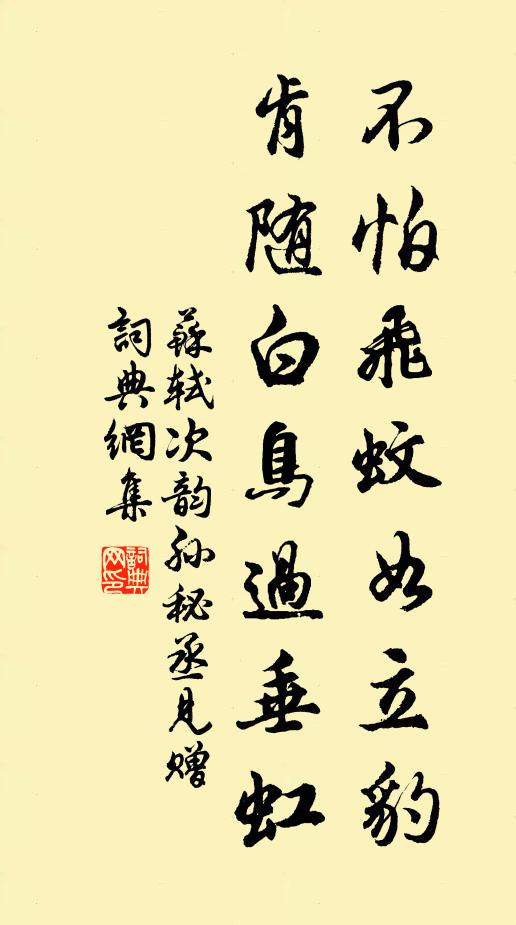 不怕飛蚊如立豹
肯随白鳥過垂虹
蘇軾次韵孙秘丞見贈
詞典網集
詞典
网印